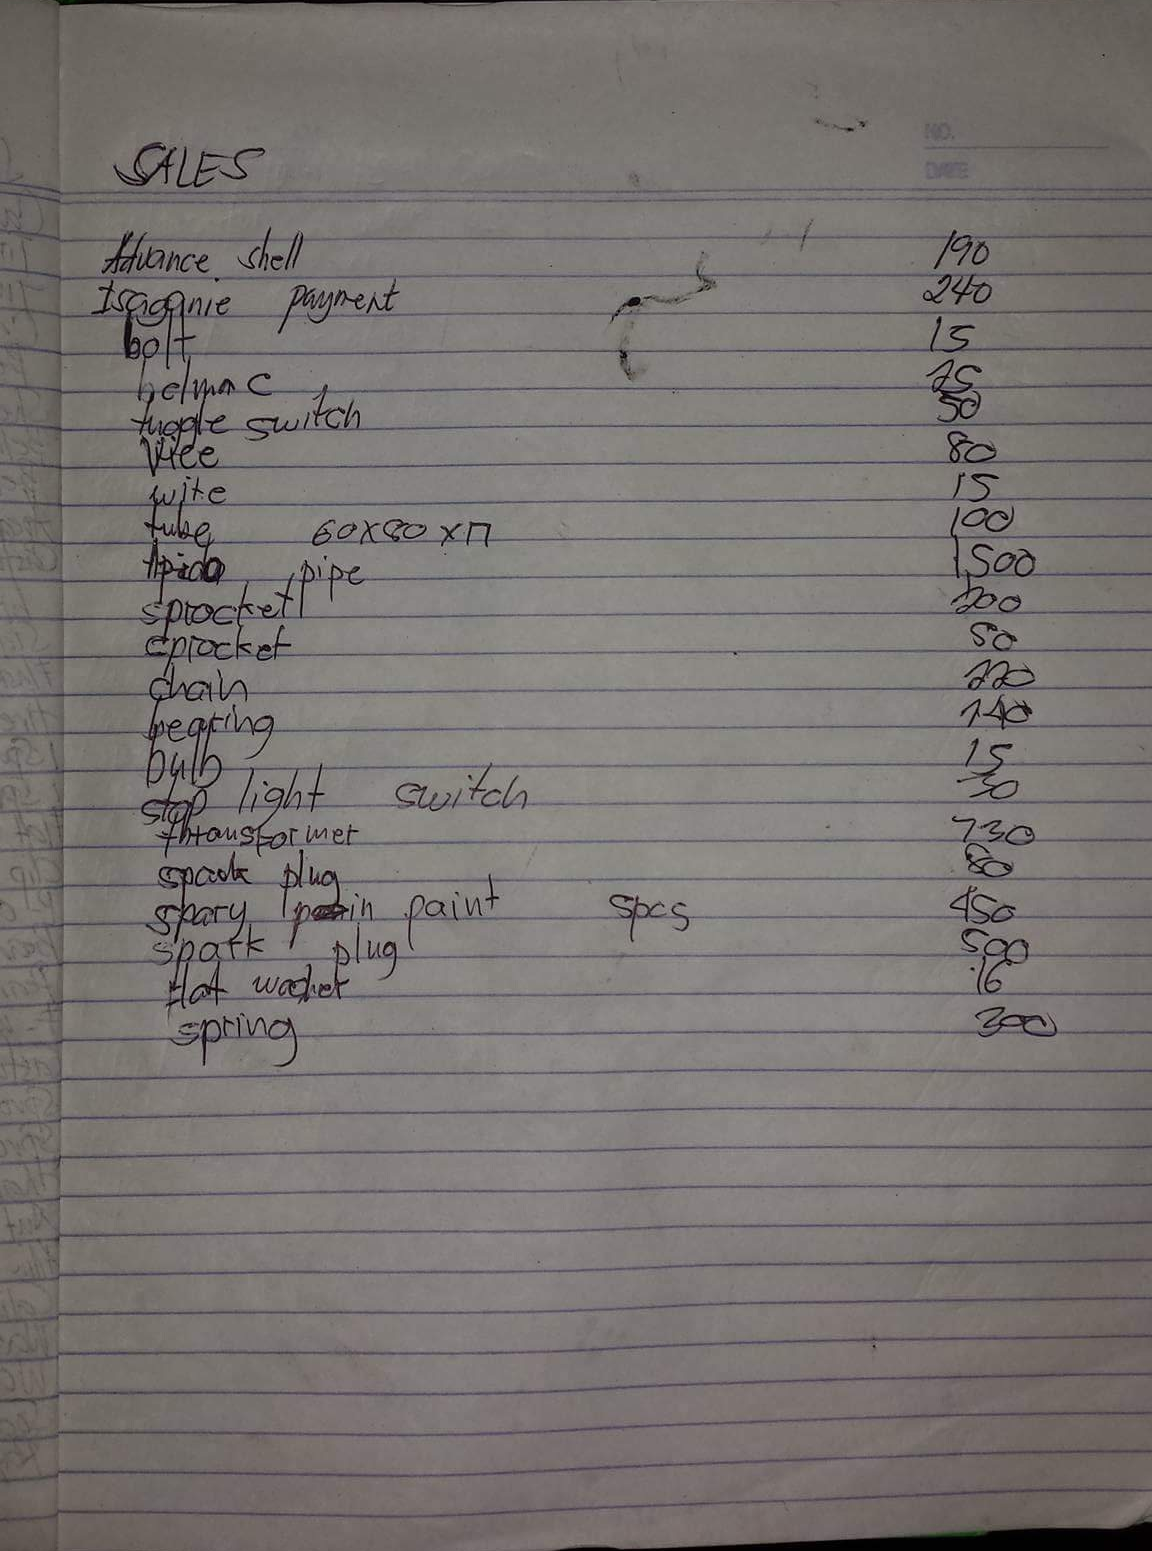 NO.
DATE
SALES
Advance shell 190
Isaganie payment 240
bolt 15
25
tuggle switch 50
80
wire 15
tube 60x80x17 100
pipe 1,500
sprocket 200
sprocket 50
chain 220
bearing 140
bulb 15
stop light switch 30
transformer 730
spark plug 80
spary paint 5pcs 450
spark plug 500
flat washer 16
spring 300